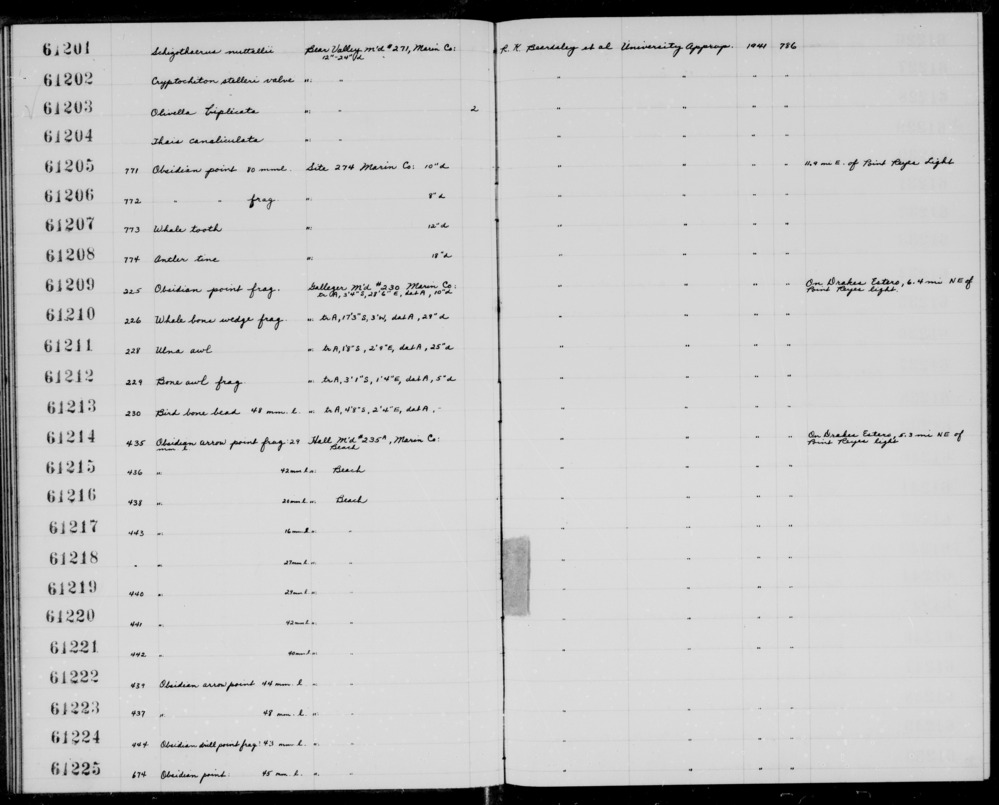 61201 Schizothaerus nuttallii Bear Valley M'd #271, Marin Co: R. K. Beardsley et al University Approp. 1941 786
12"-24"d
61202 Cryptochiton stelleri valve " " " " " "
61203 Olivella biplicata " " 2 " " " "
61204 Thais canaliculata " " " " " "
61205 771 Obsidian point 80 mml. Site 274 Marin Co: 10"d " " " " 11.9 mi E. of Point Reyes Light
61206 772 " " frag " 8"d " " " "
61207 773 Whale tooth " 12"d " " " "
61208 774 Antler tine " 18"d " " " "
61209 225 Obsidian point frag. Gallager M'd #230 Marin Co: " " " " On Drakes Estero, 6.4 mi NE of
tr A, 3'4"S, 28'6"E, dat A, 10"d Point Reyes light.
61210 226 Whale bone wedge frag. " tr A, 17'5"S, 3'W, dat A, 29"d " " " "
61211 228 Ulna awl " tr A, 1'8"S, 2'9"E, dat A, 25"d " " " "
61212 229 Bone awl frag. " tr A, 3'1"S, 1'4"E, dat A, 5"d " " " "
61213 230 Bird bone bead 48 mm. l. " tr A, 4'8"S, 2'4"E, dat A, - " " " "
61214 435 Obsidian arrow point frag: 29 Hall M'd #235A, Marin Co: " " " " On Drakes Estero, 5.3 mi NE of
mm l. Beach Point Reyes light
61215 436 " 42mm l. " Beach " " " "
61216 438 " 21mm l. " Beach " " " "
61217 443 " 16mm l. " " " " " "
61218 - " 27mm l. " " " " " "
61219 440 " 29mm l. " " " " " "
61220 441 " 42mm l. " " " " " "
61221 442 " 40mm l. " " " " " "
61222 439 Obsidian arrow point 44 mm. l " " " " " "
61223 437 " 48 mm. l. " " " " " "
61224 444 Obsidian drill point frag: 43 mm l. " " " " " "
61225 674 Obsidian point: 45 mm. l. " " " " " "